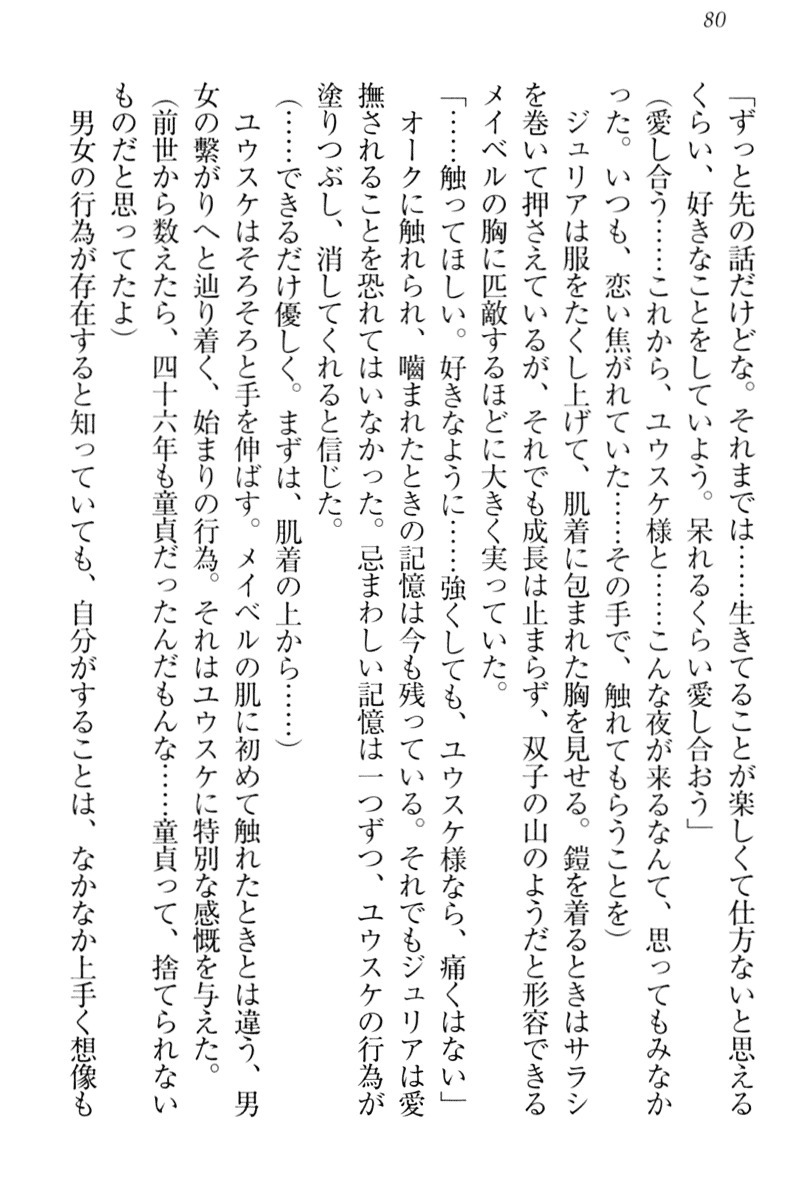 80
「ずっと先の話だけどな。それまでは……生きてることが楽しくて仕方ないと思える
くらい、好きなことをしていよう。呆れるくらい愛し合おう」
(愛し合う……これから、ユウスケ様と……こんな夜が来るなんて、思ってもみなか
った。いつも、恋い焦がれていた……その手で、触れてもらうことを)
　ジュリアは服をたくし上げて、肌着に包まれた胸を見せる。鎧を着るときはサラシ
を巻いて押さえているが、それでも成長は止まらず、双子の山のようだと形容できる
メイベルの胸に匹敵するほどに大きく実っていた。
「……触ってほしい。好きなように……強くしても、ユウスケ様なら、痛くはない」
　オークに触れられ、嚙まれたときの記憶は今も残っている。それでもジュリアは愛
撫されることを恐れてはいなかった。忌まわしい記憶は一つずつ、ユウスケの行為が
塗りつぶし、消してくれると信じた。
(……できるだけ優しく。まずは、肌着の上から……)
　ユウスケはそろそろと手を伸ばす。メイベルの肌に初めて触れたときとは違う、男
女の繫がりへと辿り着く、始まりの行為。それはユウスケに特別な感慨を与えた。
(前世から数えたら、四十六年も童貞だったんだもんな……童貞って、捨てられない
ものだと思ってたよ)
　男女の行為が存在すると知っていても、自分がすることは、なかなか上手く想像も